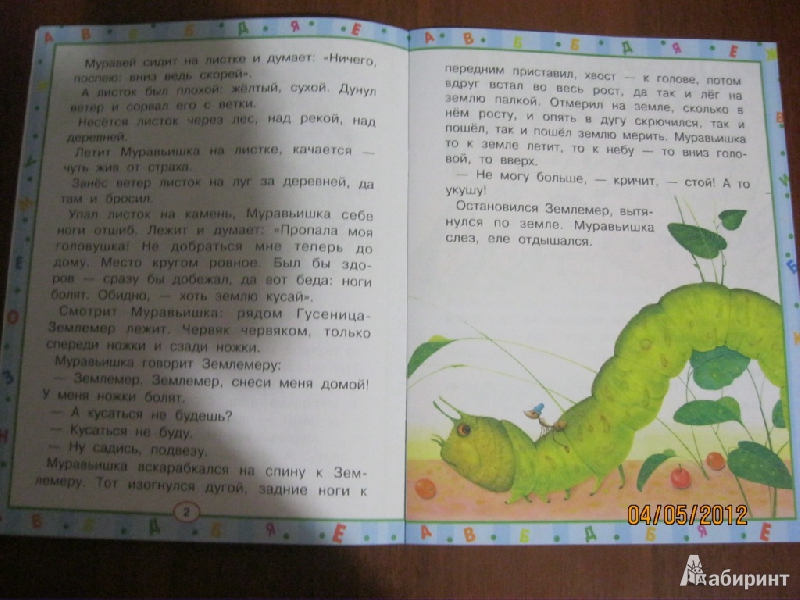 Муравей сидит на листке и думает: «Ничего,
поспею: вниз ведь скорей».
А листок был плохой: жёлтый, сухой. Дунул
ветер и сорвал его с ветки.
Несётся листок через лес, над рекой, над
деревней.
Летит Муравьишка на листке, качается —
чуть жив от страха.
Занёс ветер листок на луг за деревней, да
там и бросил.
Упал листок на камень, Муравьишка себе
ноги отшиб. Лежит и думает: «Пропала моя
головушка! Не добраться мне теперь до
дому. Место кругом ровное. Был бы здо-
ров — сразу бы добежал, да вот беда: ноги
болят. Обидно, — хоть землю кусай».
Смотрит Муравьишка: рядом Гусеница-
Землемер лежит. Червяк червяком, только
спереди ножки и сзади ножки.
Муравьишка говорит Землемеру:
— Землемер, Землемер, снеси меня домой!
У меня ножки болят.
— А кусаться не будешь?
— Кусаться не буду.
— Ну садись, подвезу.
Муравьишка вскарабкался на спину к Зем-
лемеру. Тот изогнулся дугой, задние ноги к
2
передним приставил, хвост — к голове, потом
вдруг встал во весь рост, да так и лёг на
землю палкой. Отмерил на земле, сколько в
нём росту, и опять в дугу скрючился, так и
пошёл, так и пошёл землю мерить. Муравьишка
то к земле летит, то к небу — то вниз голо-
вой, то вверх.
— Не могу больше, — кричит, — стой! А то
укушу!
Остановился Землемер, вытя-
нулся по земле. Муравьишка
слез, еле отдышался.
04/05/2012
Лабиринт